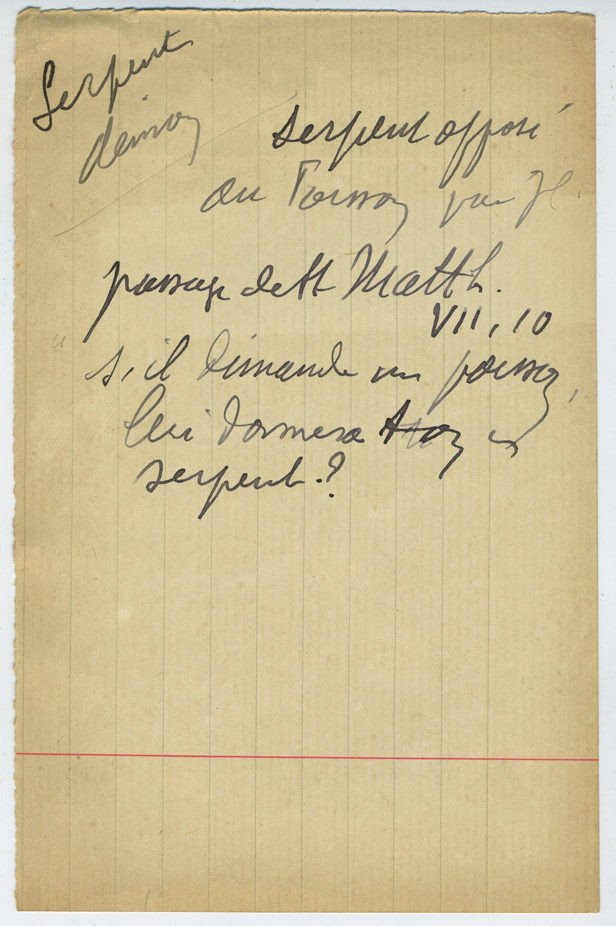 Serpent
démon
serpent opposé
au Poisson par JC.
passage de St Matth.
VII, 10
S'il demande un poisson,
lui donnera t-on un
serpent ?